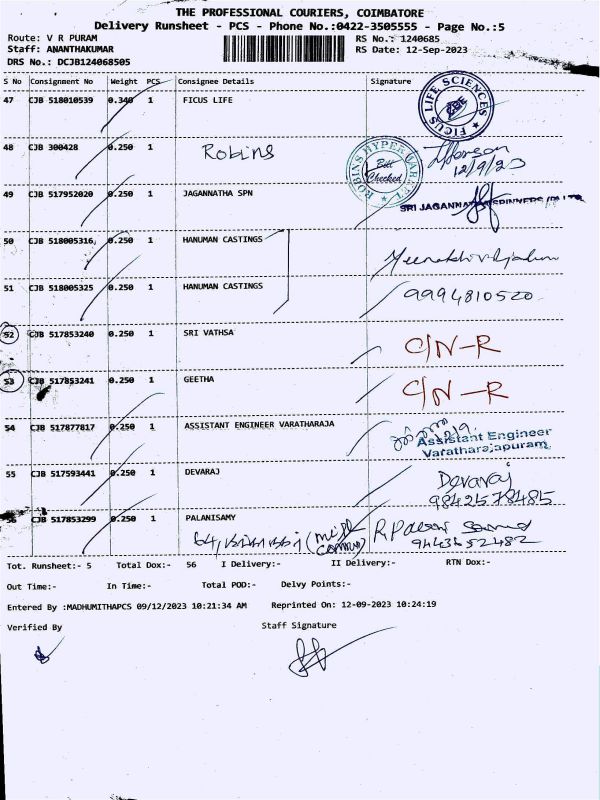 THE PROFESSIONAL COURIERS, COIMBATORE
Delivery Runsheet - PCS - Phone No.:0422-3505555 - Page No.:5
Route: V R PURAM RS No.: 1240685
Staff: ANANTHAKUMAR RS Date: 12-Sep-2023
DRS No.: DCJB124068505
S No Consignment No Weight PCS Consignee Details Signature
47 CJB 518010539 0.340 1 FICUS LIFE
FICUS LIFE SCIENCES CBE
48 CJB 300428 0.250 1 Robins
ROBINS HYPER MARKET Bill Checked
12/9/23
49 CJB 517952020 0.250 1 JAGANNATHA SPN
SRI JAGANNATHA SPINNERS (P) LTD
50 CJB 518005316 0.250 1 HANUMAN CASTINGS
51 CJB 518005325 0.250 1 HANUMAN CASTINGS 9994810520
52 CJB 517853240 0.250 1 SRI VATHSA C/N-R
53 CJB 517853241 0.250 1 GEETHA C/N-R
54 CJB 517877817 0.250 1 ASSISTANT ENGINEER VARATHARAJA
Assistant Engineer
Varatharajapuram
55 CJB 517593441 0.250 1 DEVARAJ Devaraj
9842578485
56 CJB 517853299 0.250 1 PALANISAMY
9443652482
Tot. Runsheet:- 5 Total Dox:- 56 I Delivery:- II Delivery:- RTN Dox:-
Out Time:- In Time:- Total POD:- Delvy Points:-
Entered By :MADHUMITHAPCS 09/12/2023 10:21:34 AM Reprinted On: 12-09-2023 10:24:19
Verified By Staff Signature